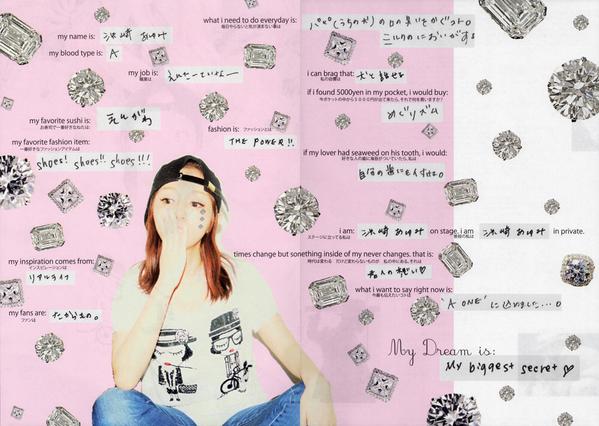 my name is: 浜崎 あゆみ
my blood type is: A
my job is:
職業は
my favorite sushi is: えんがわ
お寿司で一番好きなねたは:
fashion is: THE POWER!!
ファッションとは
my favorite fashion item:
一番好きなファッションアイテムは
shoes! shoes!! shoes!!!
my inspiration comes from:
インスピレーションは
リアルライフ
my fans are: たからもの。
ファンは
what i need to do everyday is:
毎日やらないと気が済まない事は
i can brag that: 犬と話せる
私の自慢は
if i found 5000yen in my pocket, i would buy:
今ポケットの中から5000円が出て来たら、それで何を買いますか?
めぐりズム
if my lover had seaweed on his tooth, i would:
好きな人の歯に海苔がついていたら、私は
自分の歯にものせる。
i am: 浜崎 あゆみ on stage, i am 浜崎 あゆみ in private.
ステージに立ってる私は
普段の私は
times change but something inside of my never changes. that is:
時代は変わる だけど変わらないものが 私の中にある。それは
what i want to say right now is:
今最も伝えたいコトは
'A ONE' に込めました...。
My Dream is:
My biggest secret ♡